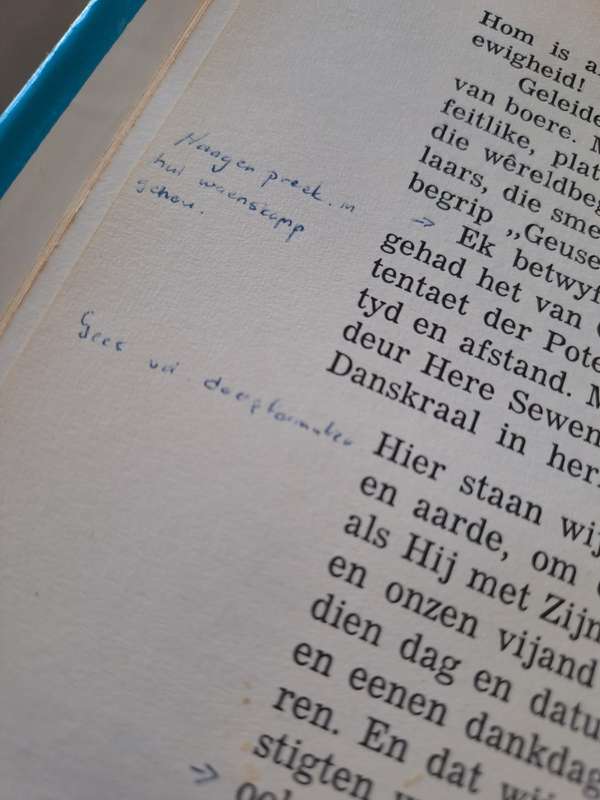 Hom is
ewigheid!
Geleide
van boere.
feitlike, plat
die wêreldbeg
laars, die sme
begrip „Geuse
Ek betwyf
gehad het van
tentaet der Pote
tyd en afstand. M
deur Here Sewen
Danskraal in her
Hier staan wij
en aarde, om
als Hij met Zijn
en onzen vijand
dien dag en datu
en eenen dankdag
ren. En dat wij
stigten
preek in
hul waenskamp
gehou.